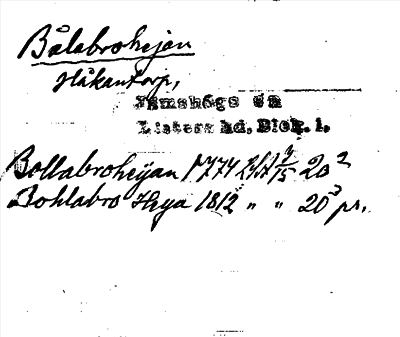 Bålabrohejan
Håkantorp,
Jämshögs sn
Listers hd, Blek. l.
Bollabroheijan 1774 20²
Bohlabro Heya 1812 " " 20³ pr.